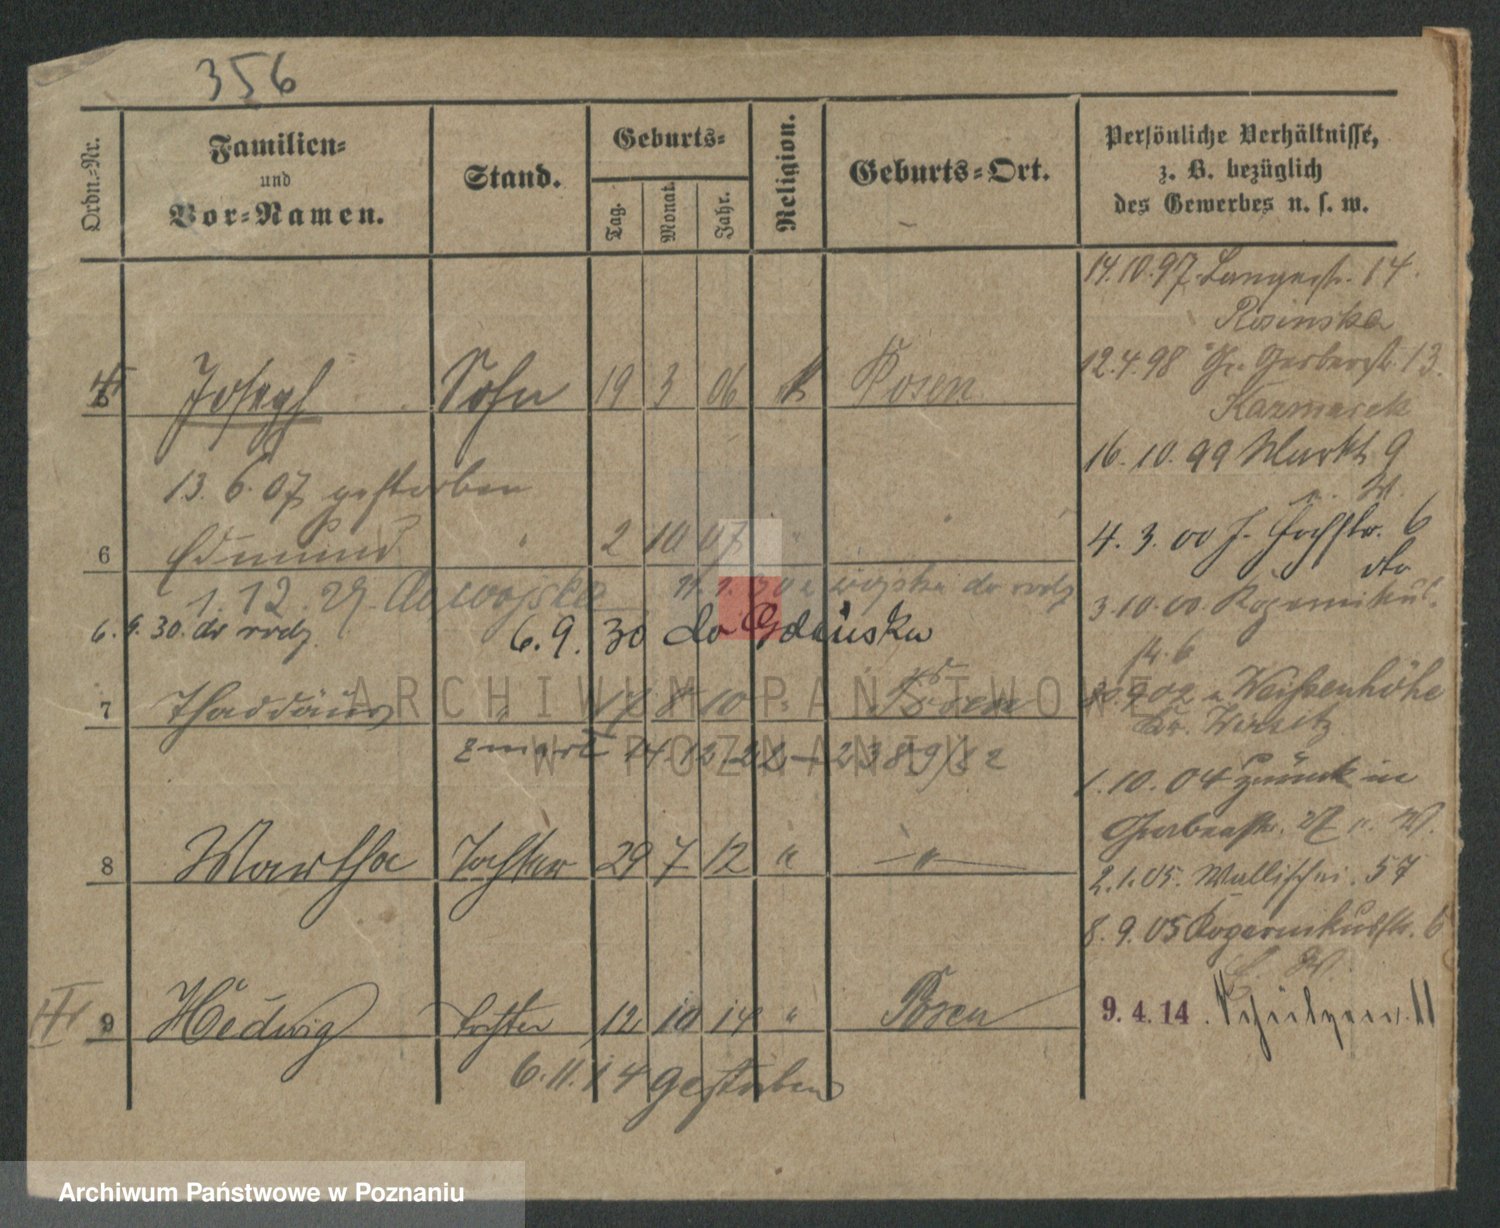 356
Ordn.-Nr.
Familien-
und
Vor-Namen.
Stand.
Geburts-
Tag.
Monat.
Jahr.
Religion.
Geburts-Ort.
Persönliche Verhältnisse,
z. B. bezüglich
des Gewerbes u. s. w.
14.10.97. Langestr. 14.
Rosinska
12.4.98 Gr. Gerberstr. 13.
Kazmarek
Joseph Sohn 19 3 06 k Posen
16. 10. 99 Markt 9
13. 6. 07 gestorben
4. 3. 00 6
dto
6 Edmund " 2 10 07 "
1. 12. 27. do wojska w wojska do rodz
3.10.00. Kopernikus-
str. 6
6. 9. 30. do rodz. 6. 9. 30 do Gdańska
7 Thaddäus " 17 8 10 " Posen
902 n Weißenhöhe
Kr. Wirsitz
zmarł 14. 12. 22 – 2389/22
1. 10. 04 zurück in
Gerberstr.
8 Martha Tochter 29 7 12 " "
2.1.05. Wallischei. 57
8. 9. 05 Kopernikusstr. 6
9 Hedwig Tochter 12 10 14 " Posen
9. 4. 14. Schützenstr. 11
6. 11. 14 gestorben
ARCHIWUM PAŃSTWOWE
W POZNANIU
Archiwum Państwowe w Poznaniu